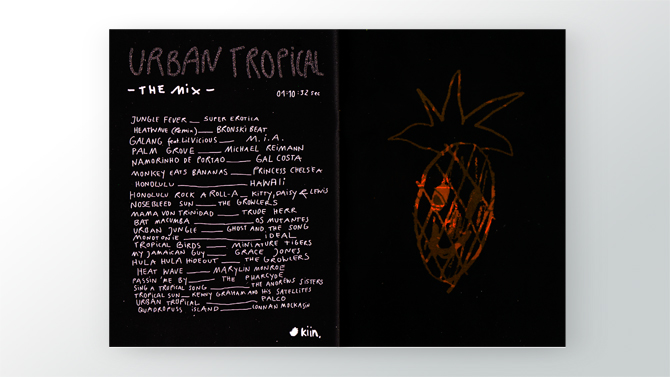 URBAN TROPICAL
- THE MIX -
01:10:32 sec
JUNGLE FEVER __ SUPER EROTICA
HEATWAVE (Remix) __ BRONSKI BEAT
GALANG feat. Lil Vicious __ M.i.A.
PALM GROVE __ MICHAEL REIMANN
NAMORINHO DE PORTAO __ GAL COSTA
MONKEY EATS BANANAS __ PRINCESS CHELSEA
HONOLULU __ HAWAII
HONOLULU ROCK A ROLL-A __ KITTY, DAISY & LEWIS
NOSEBLEED SUN __ THE GROWLERS
MAMA VON TRINIDAD __ TRUDE HERR
BAT MACUMBA __ OS MUTANTES
URBAN JUNGLE __ GHOST AND THE SONG
MONOTONIE __ IDEAL
TROPICAL BIRDS __ MINIATURE TIGERS
MY JAMAICAN GUY __ GRACE JONES
HULA HULA HIDEOUT __ THE GROWLERS
HEAT WAVE __ MARYLIN MONROE
PASSIN' ME BY __ THE PHARCYDE
SING A TROPICAL SONG __ THE ANDREWS SISTERS
TROPICAL SUN __ KENNY GRAHAM AND HIS SATELLITES
URBAN TROPICAL __ PALCO
QUADROPUSS ISLAND __ CONNAN MOCKASIN
kiin.